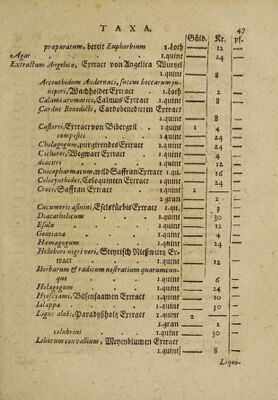 TAXA. 47
Güld. Kr. pf.
præparatum, bereit Euphorbium 1.loth — 12 —
Agar 1.quint — 24 —
Extractum Angelicæ, Extract von Angelica Wurtzel
1.quint — 8 —
Arceuthidum Andernaci, succus baccarum ju-
niperi, Wachholder Extract 1.loth — 2 —
Calami aromatici, Calmus Extract 1.quint — 8 —
Cardui Benedicti, Cardobenedicten Extract
1.quint — 8 —
Castorei, Extract von Bibergeil 1.quint 1 4 —
compositi 1.quint — 24 —
Cholagogum, purgirendes Extract 1.quint — 24 —
Cichorei, Wegwart Extract 1.quint — 4 —
diacitri 1.quint — 12 —
Cnicopharmacum, wild Saffran Extract 1.qu. — 16 —
Colocynthidos, Coloquinten Extract 1.quint — 24 —
Croci, Saffran Extract 1.quint 2
1.gran — 2 —
Cucumeris asinini, Eselskürbis Extract 1.qu. — 3 —
Diacatholicum 1.quint — 30 —
Esulæ 1.quint — 12 —
Gentianæ 1.quint — 4 —
Hemagogum 1.quint — 24 —
Hellebori nigri veri, Steyrisch Nießwurtz Ex-
tract 1.quint — 12 —
Herbarum & radicum nostratium quarumcun-
que 1.quint — 6 —
Holagogum 1.quint — 24 —
Hyoscyami, Bilsensaamen Extract 1.quint — 10 —
Ialappæ 1.quint — 30 —
Ligni aloës, Paradyßholtz Extract 1.quint 2
1.gran — 2 —
colubrini 1.quint — 30 —
Liliorum convallium, Meyenblumen Extract
1.quint — 8 —
Liquo-